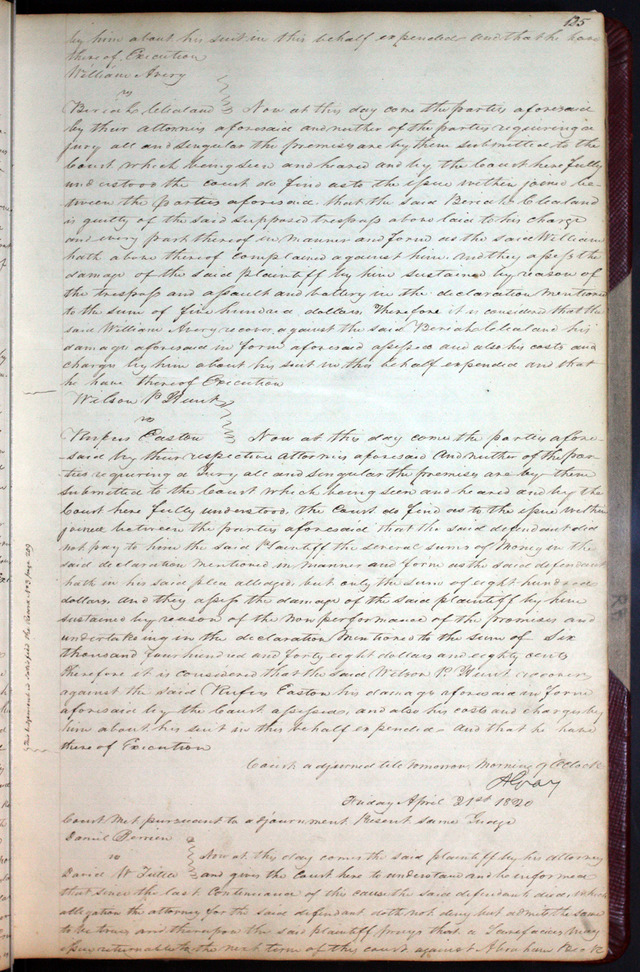 125
by him about his suit in this behalf expended and that he have
thereof Execution
William Avery
vs
Beriah Cleland Now at this day come the parties aforesaid
by their attornies aforesaid and neither of the parties requiring a
jury all and singular the premises are by them submitted to the
Court which being seen and heard and by the Court here fully
understood the court do find as to the issue within joined be-
tween the parties aforesaid that the said Beriah Cleland
is guilty of the said supposed trespass above laid to his charge
and every part thereof in manner and form as the said William
hath above thereof complained against him and they assess the
damage of the said plaintiff by him sustained by reason of
the trespass and assault and battery in the declaration mentioned
to the sum of five hundred dollars Therefore it is considered that the
said William Avery recover against the said Beriah Cleland his
damage aforesaid in form aforesaid assessed and also his costs and
charge by him about his suit in this behalf expended and that
he have thereof Execution
Wilson P Hunt
vs
Rufus Easton Now at this day come the parties afore-
said by their respective attornies aforesaid and neither of the par-
ties requiring a Jury all and singular the premises are by them
submitted to the Court which being seen and heard and by the
Court here fully understood the Court do find as to the issue within
joined between the parties aforesaid that the said defendant did
not pay to him the said Plaintiff the several sums of Money in the
said declaration mentioned in manner and form as the said defendant
hath in his said plea alledged but only the sum of eight hundred
dollars and they assess the damage of the said plaintiff by him
sustained by reason of the non performance of the promises and
undertaking in the declaration mentioned to the sum of six
thousand four hundred and forty eight dollars and eighty cents
therefore it is considered that the said Wilson P Hunt recover
against the said Rufus Easton his damage aforesaid in form
aforesaid by the Court assessed, and also his costs and charges by
him about his suit in this behalf expended and that he have
thereof Execution
This judgement is satisfied see
Court adjourned till tomorrow morning 9 OClock
A Gray
Friday April 21st 1820
Court met pursuant to adjournment Present same Judge
Daniel
vs
David W Tuttle Now at this day comes the said plaintiff by his attorney
and gives the Court here to understand and be informed
that since the last Continuance of this cause the said defendant died which
allegation the attorney for the said defendant doth not deny but admits the same
to be true and thereupon the said plaintiff prays that a Scirefacias may
issue returnable to the next term of this court against Abraham